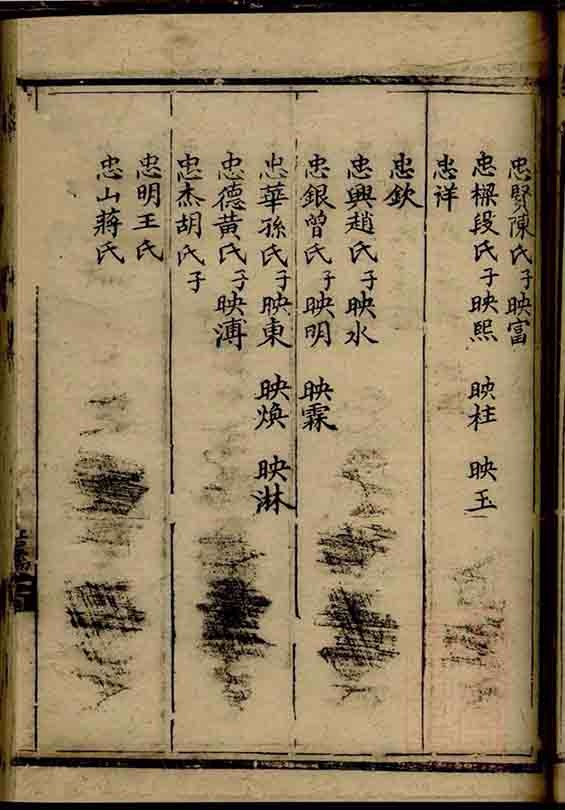 忠賢陳氏子映富
忠樑段氏子映熙 映柱 映玉
忠祥
忠欽
忠興趙氏子映水
忠銀曾氏子映明 映霖
忠華孫氏子映東 映煥 映淋
忠德黃氏子映溥
忠杰胡氏子
忠明王氏
忠山蔣氏